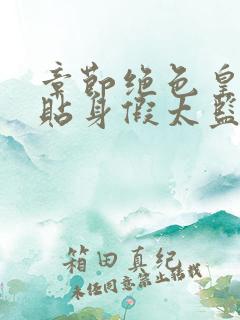 章節绝色皇
貼身假太監
箱田真纪
未经同意禁止转载